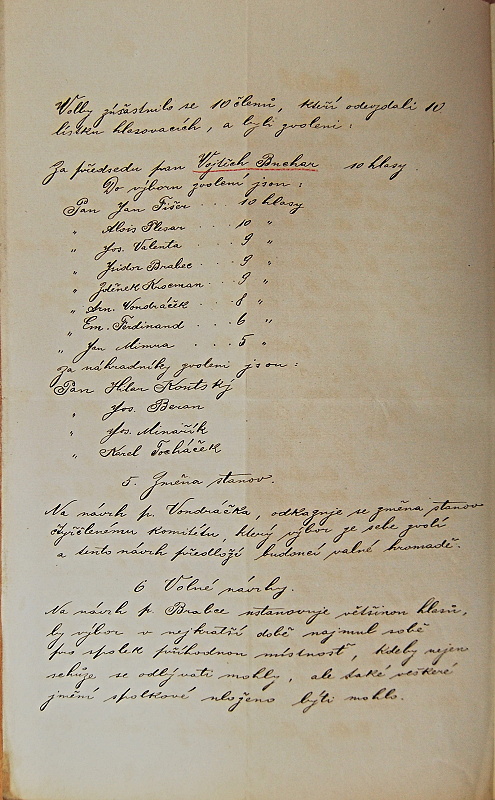 Volby zúčastnilo se 10 členů, kteří odevzdali 10
lístků hlasovacích, a byli zvoleni:
Za předsedu pan Vojtěch Buchar 10 hlasy.
Do výboru zvoleni jsou:
Pan Jan Fišer . . . 10 hlasy
„ Alois Plesar . . . 10 „
„ Jos. Valenta . . . 9 „
„ Isidor Brabec . . . 9 „
„ Zdeněk Krocman . . . 9 „
„ Arn. Vondráček . . . 8 „
„ Em. Ferdinand . . . 6 „
„ Jan Mimra . . . 5 „
Za náhradníky zvoleni jsou:
Pan Hilar Kontský
„ Jos. Beran
„ Jos. Minařík
„ Karel Tocháček
5. Změna stanov.
Na návrh p. Vondráčka, odkazuje se změna stanov
čtyřčlenému komitétu, který výbor ze sebe zvolí
a tento návrh předloží budoucí valné hromadě.
6 Volné návrhy.
Na návrh p. Brabce ustanovuje většinou hlasů,
by výbor v nejkratší době najmul sobě
pro spolek příhodnou místnosť, kdeby nejen
schůze se odbývati mohly, ale také veškeré
jmění spolkové uloženo býti mohlo.